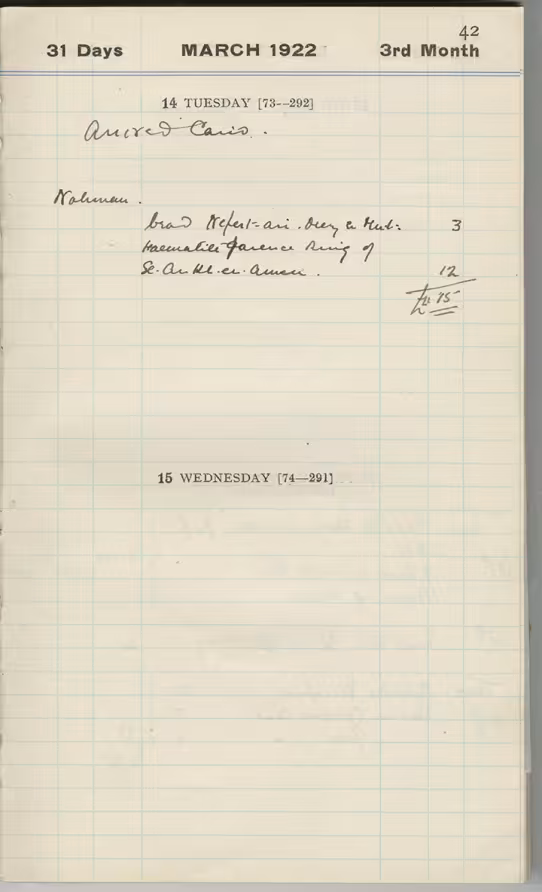 42
31 Days MARCH 1922 3rd Month
14 TUESDAY [73--292]
Arrived Cairo.
Nahman.
bead Nefert-ari. & Mut: 3
Haematite ring of
Se. Ankh. en. Amen. 12
15
15 WEDNESDAY [74—291]